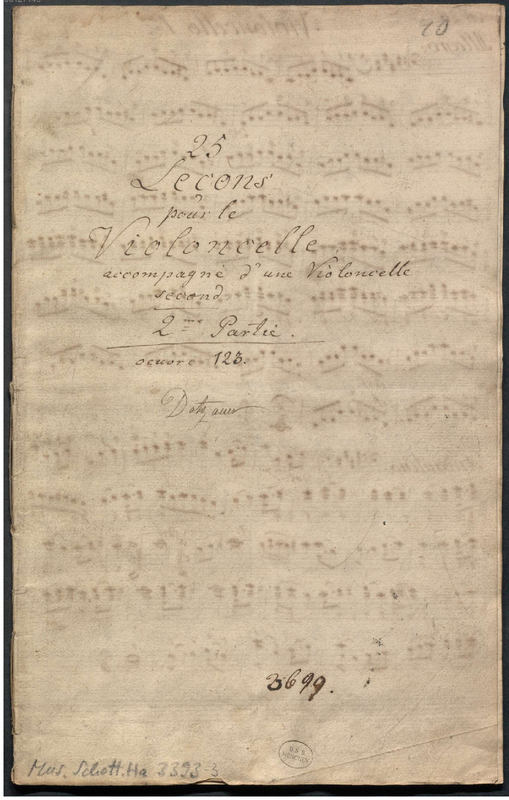 10
25
Lecons
pour le
Violoncelle
accompagné d'une Violoncelle
second
2me Partie.
oeuvre 123.
Dotzauer
3699.
B.S.B.
MÜNCHEN
Mus. Schott. Ha 3393-3